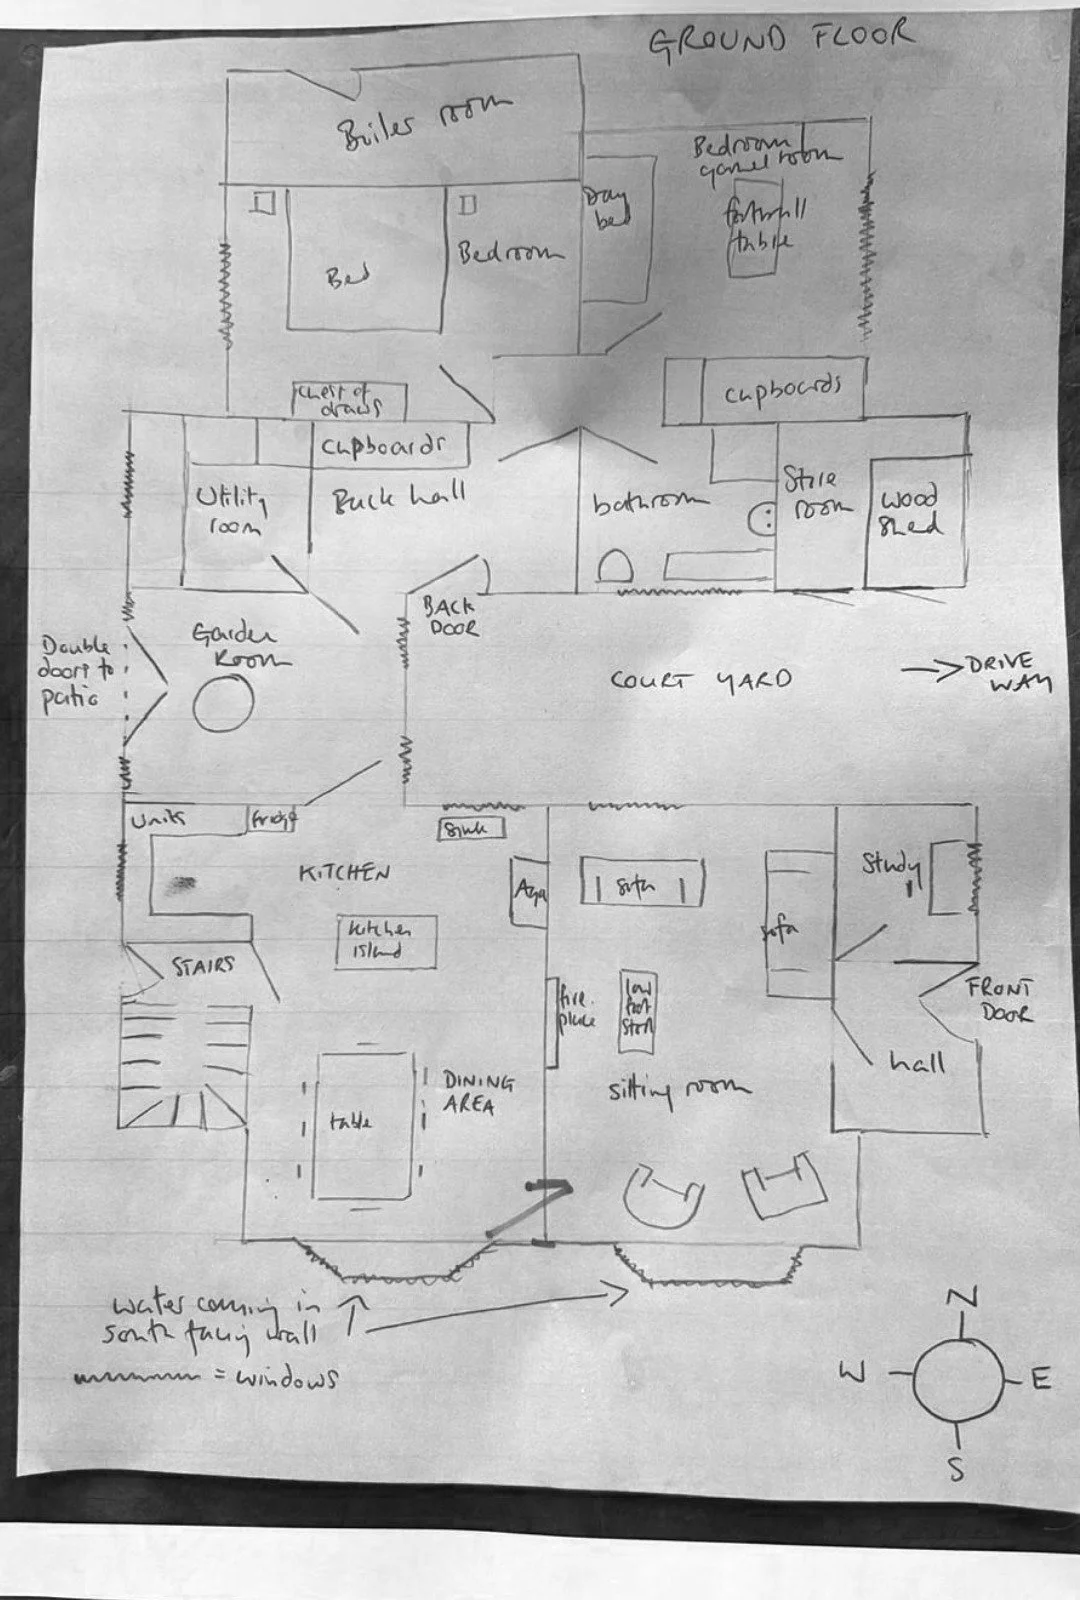 GROUND FLOOR
Boiler room
Bedroom
games room
Day
bed
football
table
Bed
Bedroom
chest of
draws
cupboards
cupboards
Utility
room
Back hall
bathroom
Store
room
wood
shed
BACK
DOOR
Garden
Room
Double
doors to
patio
COURT YARD
DRIVE
WAY
Units
fridge
Sink
KITCHEN
Aga
sofa
sofa
Study
kitchen
island
STAIRS
fire
place
low
foot
stool
FRONT
DOOR
hall
DINING
AREA
table
sitting room
water coming in
south facing wall
= windows
N
W
E
S